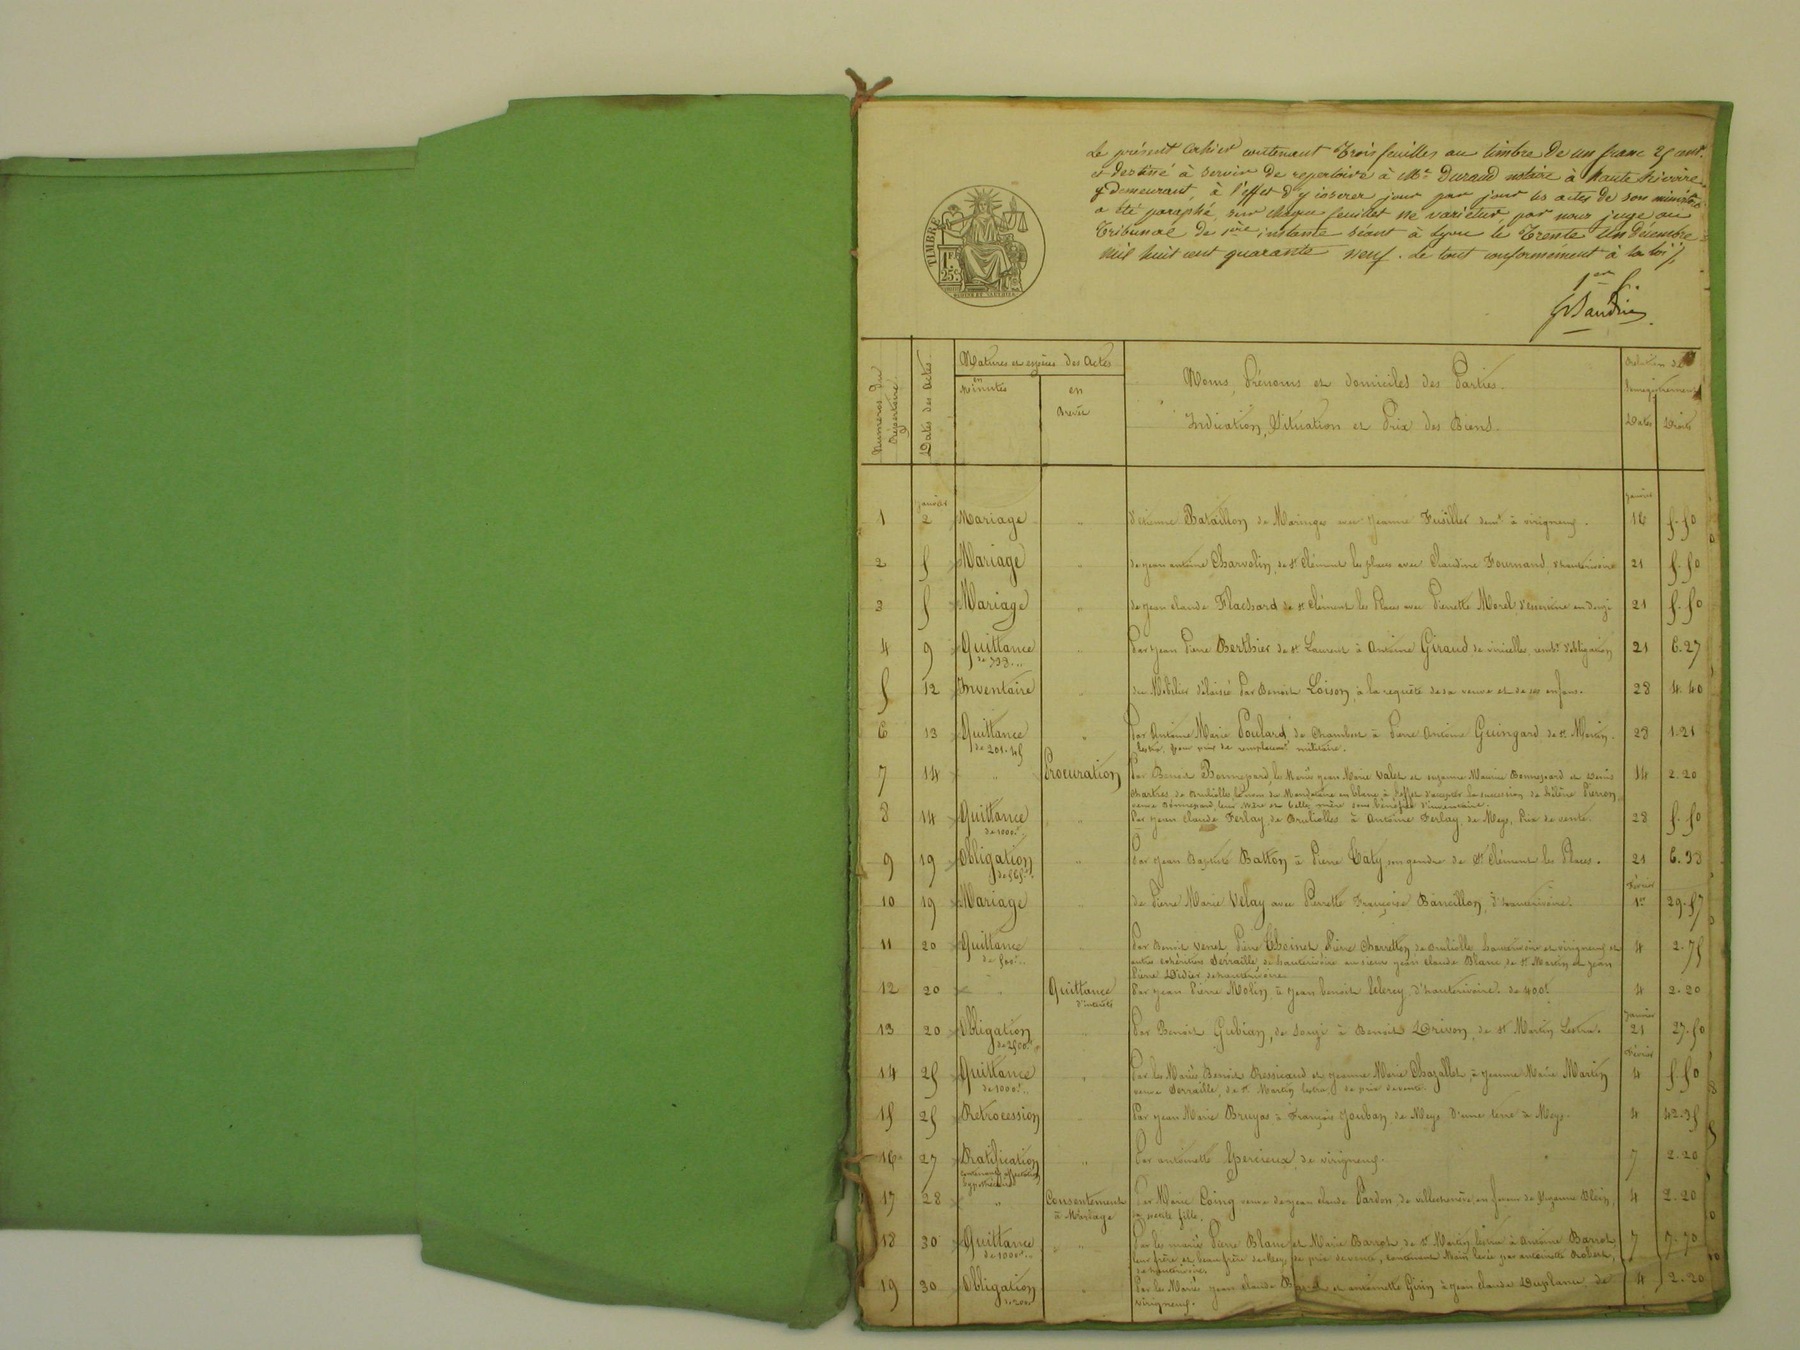 Le présent Cahier contenant Trois feuilles au timbre de un franc 25 cent.
et destiné à servir de repertoire à Mr. Durand notaire à haute Rivoire
y demeurant, à l'effet d'y inserer jour par jour les actes de son ministère
a été paraphé, sur chaque feuillet ne varietur, par nous juge au
Tribunal de 1ère instante séant à Lyon le Trente Un Décembre
Mil huit cent quarante neuf. Le tout conformément à la loi
TIMBRE
1 F.
25 c.
Numéros du Répertoire
Dates des Actes
Natures et espèces des Actes
en Minutes
en Brevet
Noms, Prénoms et domiciles des Parties.
Indication, Situation et Prix des Biens.
Relation de l'Enregistrement
Dates
Droits
janvier janvier
1 2 Mariage " d'étienne Bataillon de Maringes avec jeanne Fusiller demt à virigneux. 16 5.50
2 5 Mariage " de jean antoine Charvolin, de St Clément les places avec Claudine Fournand, d'hauterivoire 21 5.50
3 5 Mariage " de jean claude Flachard de st Clément les Places avec Pierrette Morel 21 5.50
4 9 Quittance " Par jean Pierre Berthier de st Laurent à Antoine Giraud de viricelles, rembt d'obligation 21 6.27
de 793..
5 12 Inventaire " du Mobilier délaissé par Benoit Loison, à la requête de sa veuve et de ses enfans. 28 4.40
6 13 Quittance " Par Antoine Marie Poulard, de Chambost à Pierre Antoine Guingard, de st Martin 28 1.21
de 201.45 lestra, pour prix de remplacemt militaire.
7 14 " Procuration Par Benoit Bonnepard, les Mariés jean Marie Valet et suzanne Maurice Bonnepard et Denis 14 2.20
Chartres, de Brullioles, le nom du Mandataire en blanc, à l'effet d'accepter la succession de hélène Pierron
veuve Bonnepard, leur mère et belle mère sous bénéfice d'inventaire.
8 14 Quittance " Par jean claude Ferlay, de Brullioles à Antoine Ferlay, de Meys, Prix de vente. 28 5.50
de 1000..
9 19 Obligation " Par jean Baptiste Batton à Pierre Caty, son gendre de St Clément les Places. 21 6.33
de 565..
Février
10 19 Mariage " de Pierre Marie Velay avec Pierrette Françoise Bancillon, d'hauterivoire. 1er 29.57
11 20 Quittance " Par Benoit Venet, Pierre Choinet, Pierre Charretton, de Brullioles, hauterivoire et virigneux et 4 2.75
de 500.. autres cohéritiers Serraille, de hauterivoire au sieur jean claude Blanc, de st Martin et jean
Pierre Didier de hauterivoire
12 20 " Quittance Par jean Pierre Molin, à jean benoit Celerey, d'hauterivoire. de 400f 4 2.20
d'intérêts
janvier
13 20 Obligation " Par Benoit Gubian, de Souzy à Benoit Drivon, de st Martin Lestra. 21 27.50
de 2500..
Février
14 25 Quittance " Par les Mariés Benoit Ressicaud et jeanne Marie Chazallet, à jeanne Marie Martin 4 5.50
de 1000.. veuve Serraille, de st Martin lestra, de prix de vente.
15 25 Retrocession Par jean Marie Bruyas à François Jouban, de Meys d'une terre à Meys. 4 42.35
16 27 Ratification " Par antoinette Ypercieux, de virigneux. 7 2.20
contenant affectation
hypothécaire
17 28 " Consentement Par Marie Coing veuve de jean claude Pardon, de villechenève, en faveur de Suzanne Blein, 4 2.20
à Mariage sa petite fille.
18 30 Quittance " Par les mariés Pierre Blanc et Marie Barrot, de st Martin lestra à Antoine Barrot 7 7.70
de 1000.. leur frère et beau frère de Meys, de prix de vente, contenant Main levée par antoinette Robert,
de hauterivoire.
19 30 Obligation " Par les Mariés jean claude et antoinette Girin à jean claude Duplanu de 4 2.20
virigneux.